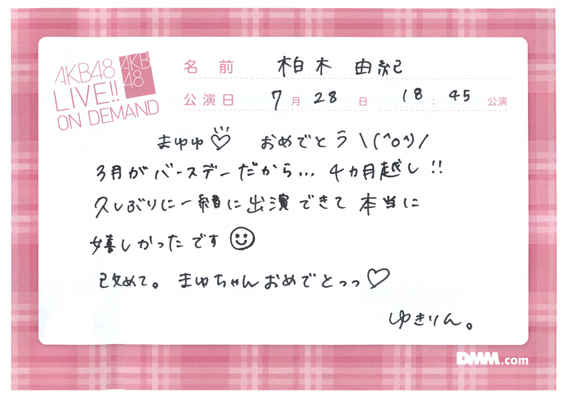 AKB48
LIVE!!
ON DEMAND
AKB
48
名前 柏木 由紀
公演日 7月 28日 18:45 公演
まゆゆ♡ おめでとう \(^o^)/
3月がバースデーだから... 4カ月越し!!
久しぶりに一緒に出演できて 本当に
嬉しかったです☺
改めて。まゆちゃんおめでとっっ♡
ゆきりん。
DMM.com